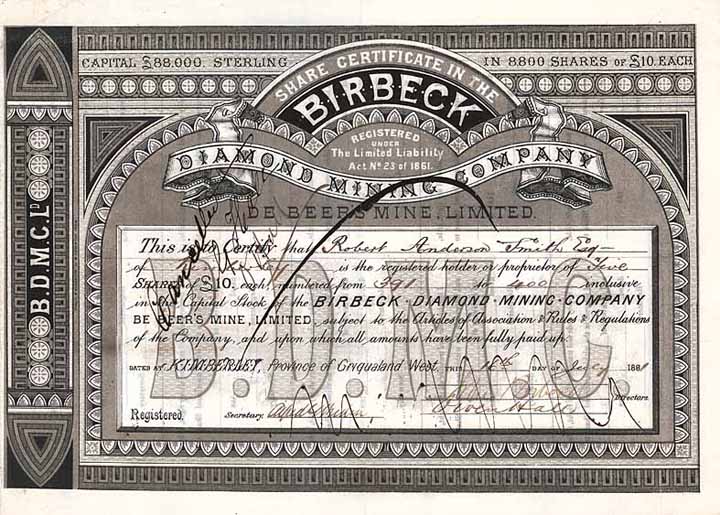 CAPITAL £88.000 STERLING
IN 8800 SHARES OF £10. EACH
SHARE CERTIFICATE IN THE
BIRBECK
REGISTERED
UNDER
The Limited Liability
Act No 23 of 1861.
DIAMOND MINING COMPANY
DE BEER'S MINE, LIMITED.
B.D.M.C. LD
Cancelled
This is to Certify that Robert Anderson Smith Esq
of Kimberley is the registered holder or proprietor of
SHARES of £10, each, numbered from 391 to 400 inclusive
in the Capital Stock of the BIRBECK-DIAMOND-MINING-COMPANY
DE BEER'S MINE, LIMITED, subject to the Articles of Association & Rules & Regulations
of the Company, and upon which all amounts have been fully paid up.
DATED AT KIMBERLEY, Province of Griqualand West, THIS 18th DAY OF July 1881
B.D.M.C.
Directors.
Registered. Secretary.